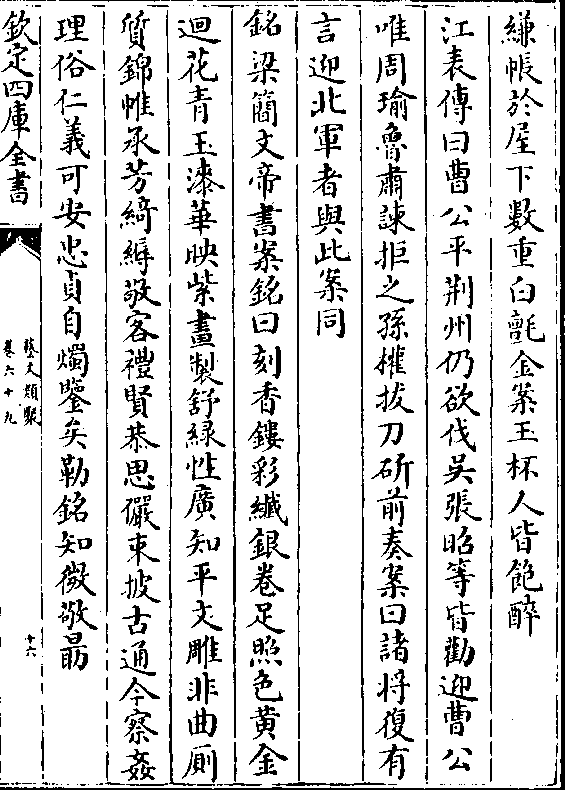 縑帳於屋下數重白氊金案玉杯人皆飽醉
江表傳曰曹公平荆州仍欲伐吳張昭等皆勸迎曹公
唯周瑜魯肅諫拒之孫權拔刀斫前奏案曰諸将復有
言迎北軍者與此案同
銘梁簡文帝書案銘曰刻香鏤彩纖銀卷足照色黄金
迴花青玉漆華映紫畫製舒緑性廣知平文雕非曲厠
質錦帷承芳綺縟敬客禮賢恭思儼束披古通今察姦
理俗仁義可安忠貞自燭鑒矣勒銘知微敬勗
欽定四庫全書
藝文類聚
卷六十九
十六